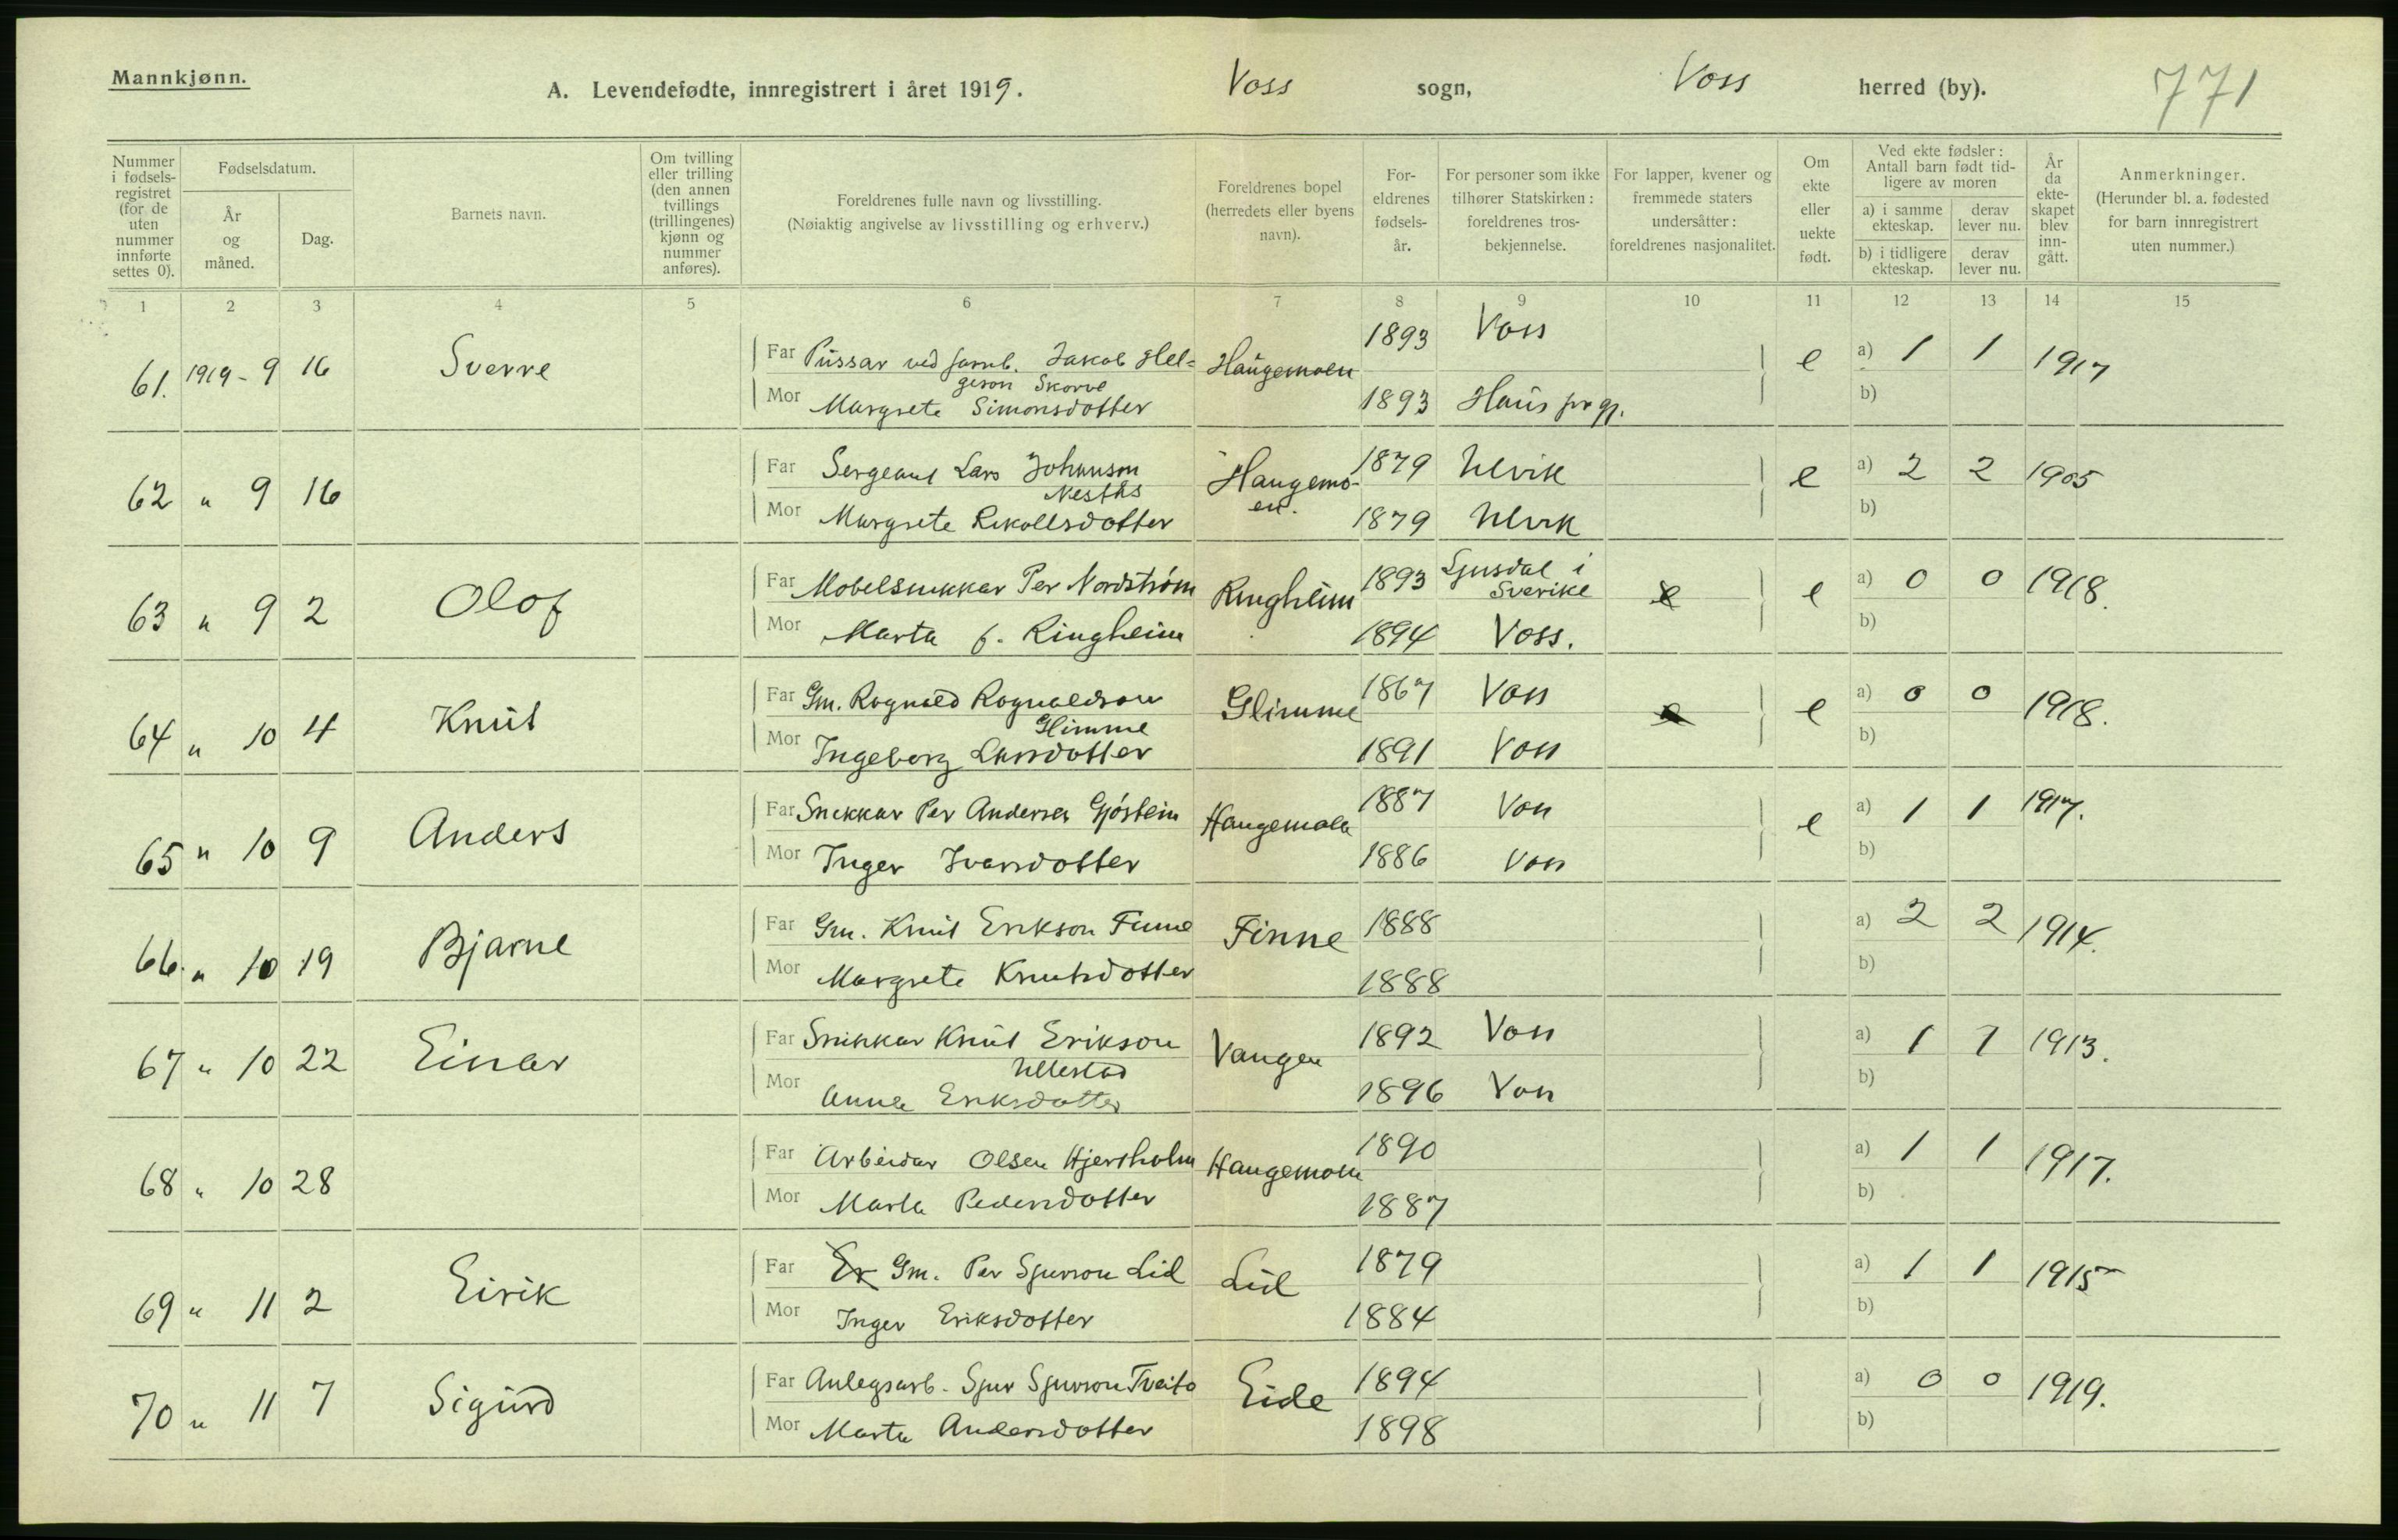 Mannkjønn.
A. Levendefødte, innregistrert i året 1919. Voss sogn, Voss herred (by). 771
Nummer i fødsels-registret (for de uten nummer innførte settes 0).
Fødselsdatum.
År og måned.
Dag.
Barnets navn.
Om tvilling eller trilling (den annen tvillings (trillingenes) kjønn og nummer anføres).
Foreldrenes fulle navn og livsstilling.
(Nøiaktig angivelse av livsstilling og erhverv.)
Foreldrenes bopel (herredets eller byens navn).
For-eldrenes fødsels-år.
For personer som ikke tilhører Statskirken: foreldrenes tros-bekjennelse.
For lapper, kvener og fremmede staters undersåtter: foreldrenes nasjonalitet.
Om ekte eller uekte født.
Ved ekte fødsler: Antall barn født tid-ligere av moren
a) i samme ekteskap. derav lever nu.
b) i tidligere ekteskap. derav lever nu.
År da ekte-skapet blev inn-gått.
Anmerkninger.
(Herunder bl. a. fødested for barn innregistrert uten nummer.)
1 2 3 4 5 6 7 8 9 10 11 12 13 14 15
61. 1919 - 9 16 Sverre Far Pussar ved jarnb. Jakob Hel= Haugemoen 1893 Voss e a) 1 1 1917
geson Skorve
Mor Margrete Simonsdotter 1893 Haus pr gj. b)
62 " 9 16 Far Sergeant Lars Johannson Haugemo- 1879 Ulvik e a) 2 2 1905
Nestås en.
Mor Margrete Rikollsdotter 1879 Ulvik b)
63 " 9 2 Olof Far Møbelsnikkar Per Nordstrøm Ringheim 1893 Ljusdal i Sverike e e a) 0 0 1918.
Mor Marta f. Ringheim 1894 Voss. b)
64 " 10 4 Knut Far Gm. Rognald Rognaldson Glimme 1867 Voss e a) 0 0 1918.
Glimme
Mor Ingeborg Larsdotter 1891 Voss b)
65 " 10 9 Anders Far Snikkar Per Anderson Gjøstein Haugemoen 1887 Voss e a) 1 1 1917.
Mor Inger Ivarsdotter 1886 Voss b)
66. " 10 19 Bjarne Far Gm. Knut Erikson Finne Finne 1888 a) 2 2 1914.
Mor Margrete Knutsdotter 1888 b)
67 " 10 22 Einar Far Snikkar Knut Erikson Vangen 1892 Voss a) 1 1 1913.
Ullestad
Mor Anna Eriksdotter 1896 Voss b)
68 " 10 28 Far Arbeidar Olsen Hjersholm Haugemoen 1890 a) 1 1 1917.
Mor Marta Pedersdotter 1887 b)
69 " 11 2 Eirik Far Er Gm. Per Sjurson Lid Lid 1879 a) 1 1 1915
Mor Inger Eriksdotter 1884 b)
70 " 11 7 Sigurd Far Anlegsarb. Sjur Sjurson Tveito Eide 1894 a) 0 0 1919.
Mor Marta Andersdotter 1898 b)